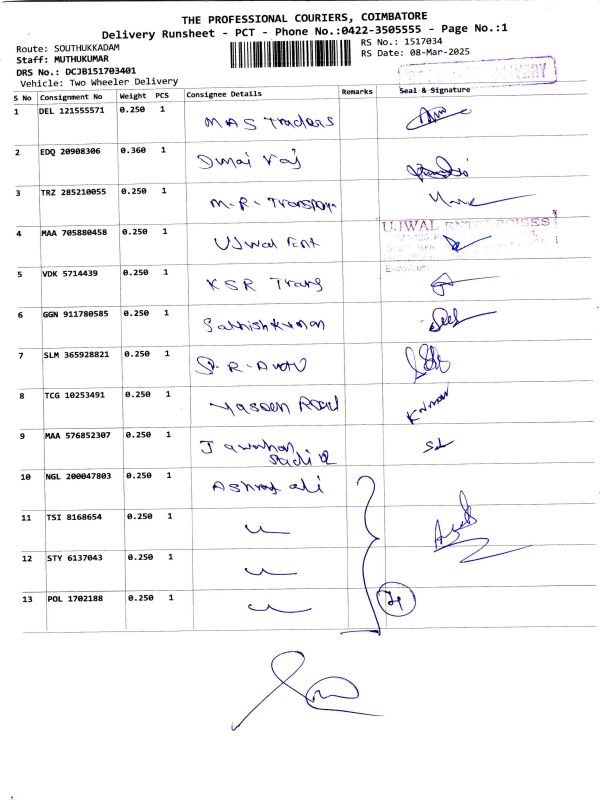 THE PROFESSIONAL COURIERS, COIMBATORE
Delivery Runsheet - PCT - Phone No.:0422-3505555 - Page No.:1
Route: SOUTHUKKADAM
RS No.: 1517034
Staff: MUTHUKUMAR
RS Date: 08-Mar-2025
DRS No.: DCJB151703401
Vehicle: Two Wheeler Delivery
DELIVERY
S No Consignment No Weight PCS Consignee Details Remarks Seal & Signature
1 DEL 121555571 0.250 1 MAS Traders
2 EDQ 20908306 0.360 1 Dmai raj
3 TRZ 285210055 0.250 1 M.R. Transport
4 MAA 705880458 0.250 1 UJwal Ent UJWAL ENTERPRISES
5 VDK 5714439 0.250 1 KSR Trans
6 GGN 911780585 0.250 1 Sathishkumar
7 SLM 365928821 0.250 1 R. Auto
8 TCG 10253491 0.250 1 Yaseen Road
9 MAA 576852307 0.250 1 Jawahar
Sadiq
10 NGL 200047803 0.250 1 Ashraf ali
11 TSI 8168654 0.250 1
12 STY 6137043 0.250 1
13 POL 1702188 0.250 1